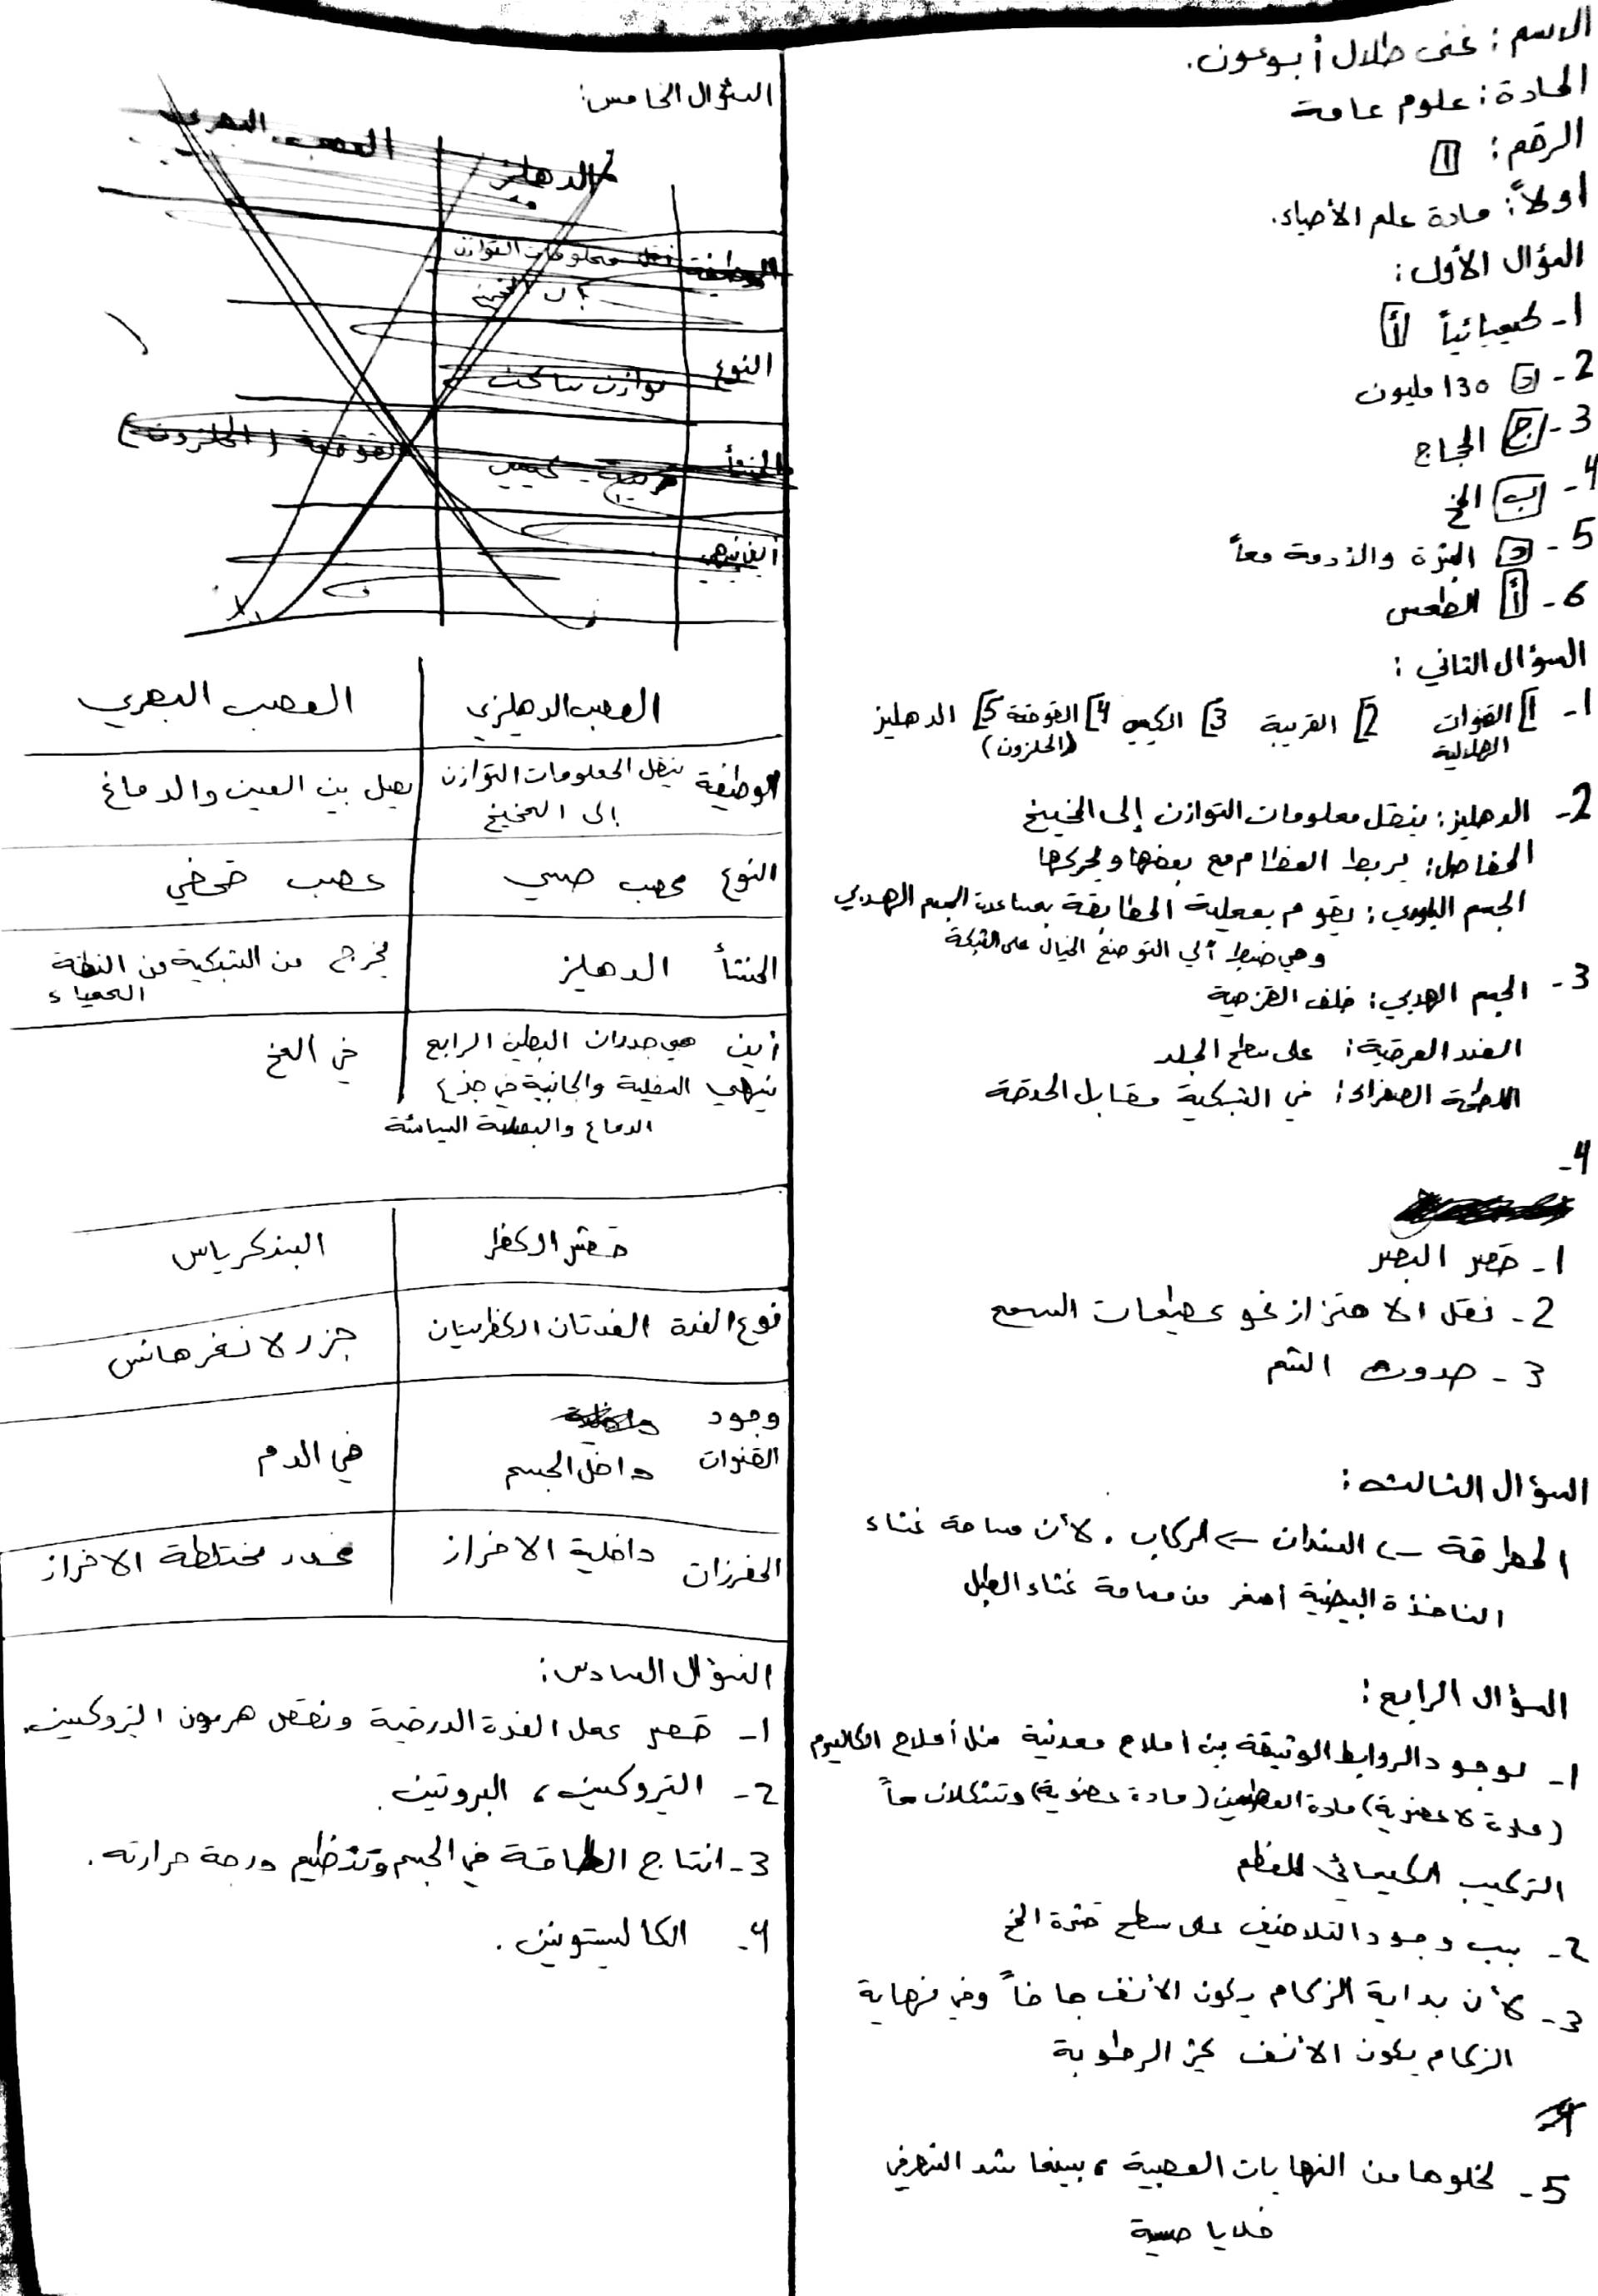 الاسم: غنى طلال أبو عون.
المادة: علوم عامة
الرقم: 1
اولاً: مادة علم الأحياء.
السؤال الأول:
1- كيميائياً أ
2- د 130 مليون
3- ج الحجاج
4- ب المخ
5- د البشرة والأدمة معاً
6- أ الطعس
السؤال الثاني:
1- 1] القنوات الهلالية 2] القريبة 3] الكييس 4] القوقعة (الحلزون) 5] الدهليز
2- الدهليز: ينقل معلومات التوازن إلى المخيخ
المفاصل: يربط العظام مع بعضها ويحركها
الجسم البلوري: يقوم بعملية المطابقة بمساعدة الجسم الهدبي
وهي ضبط آلي الخيال على الشبكة
3- الجسم الهدبي: خلف القزحية
الغدد العرقية: على سطح الجلد
اللطخة الصفراء: في الشبكية مقابل الحدقة
4-
1- قصر البصر
2- نقل الاهتزاز نحو عظيمات السمع
3- حدوث الشم
السؤال الثالث:
المطرقة -> السندان -> الركاب. لأن مساحة غشاء
النافذة البيضية أصغر من مساحة غشاء الطبل
السؤال الرابع:
1- لوجود الروابط الوثيقة بين املاح معدنية مثل أملاح الكالسيوم
(مادة لا عضوية) مادة العظمين (مادة عضوية) وتشكلان معاً
التركيب الكيميائي للعظم
2- بسبب وجود التلافيف على سطح قشرة المخ
3- لأن بداية الزكام يكون الأنف جافاً وفي نهاية
الزكام يكون الأنف كثير الرطوبة
4
5- لخلوها من النهايات العصبية، بينما شد الشعر في
خلايا حسية
السؤال الخامس:
الدهليز العصب البصري
الوظيفة نقل معلومات التوازن
الى المخيخ
النوع توازن ساكن
المنشأ قريبة كييس القوقعة (الحلزون)
أين ينتهي
العصب الدهليزي العصب البصري
الوظيفة ينقل المعلومات التوازن الى المخيخ يصل بين العين والدماغ
النوع عصب حسي عصب قحفي
المنشأ الدهليز يخرج من الشبكية من النقطة العمياء
أين ينتهي هي جدران البطين الرابع في المخ
السفلية والجانبية في جذع
الدماغ والبصلة السيسائية
قشر الكظر البنكرياس
نوع الغدة الغدتان الكظريتان جزر لانغرهانس
وجود القنوات داخل الجسم في الدم
المفرزات داخلية الافراز غدد مختلطة الافراز
السؤال السادس:
1- قصر عمل الغدة الدرقية ونقص هرمون التروكسين.
2- التروكسين، البروتين.
3- انتاج الطاقة في الجسم وتنظيم درجة حرارته.
4- الكالسيتونين.